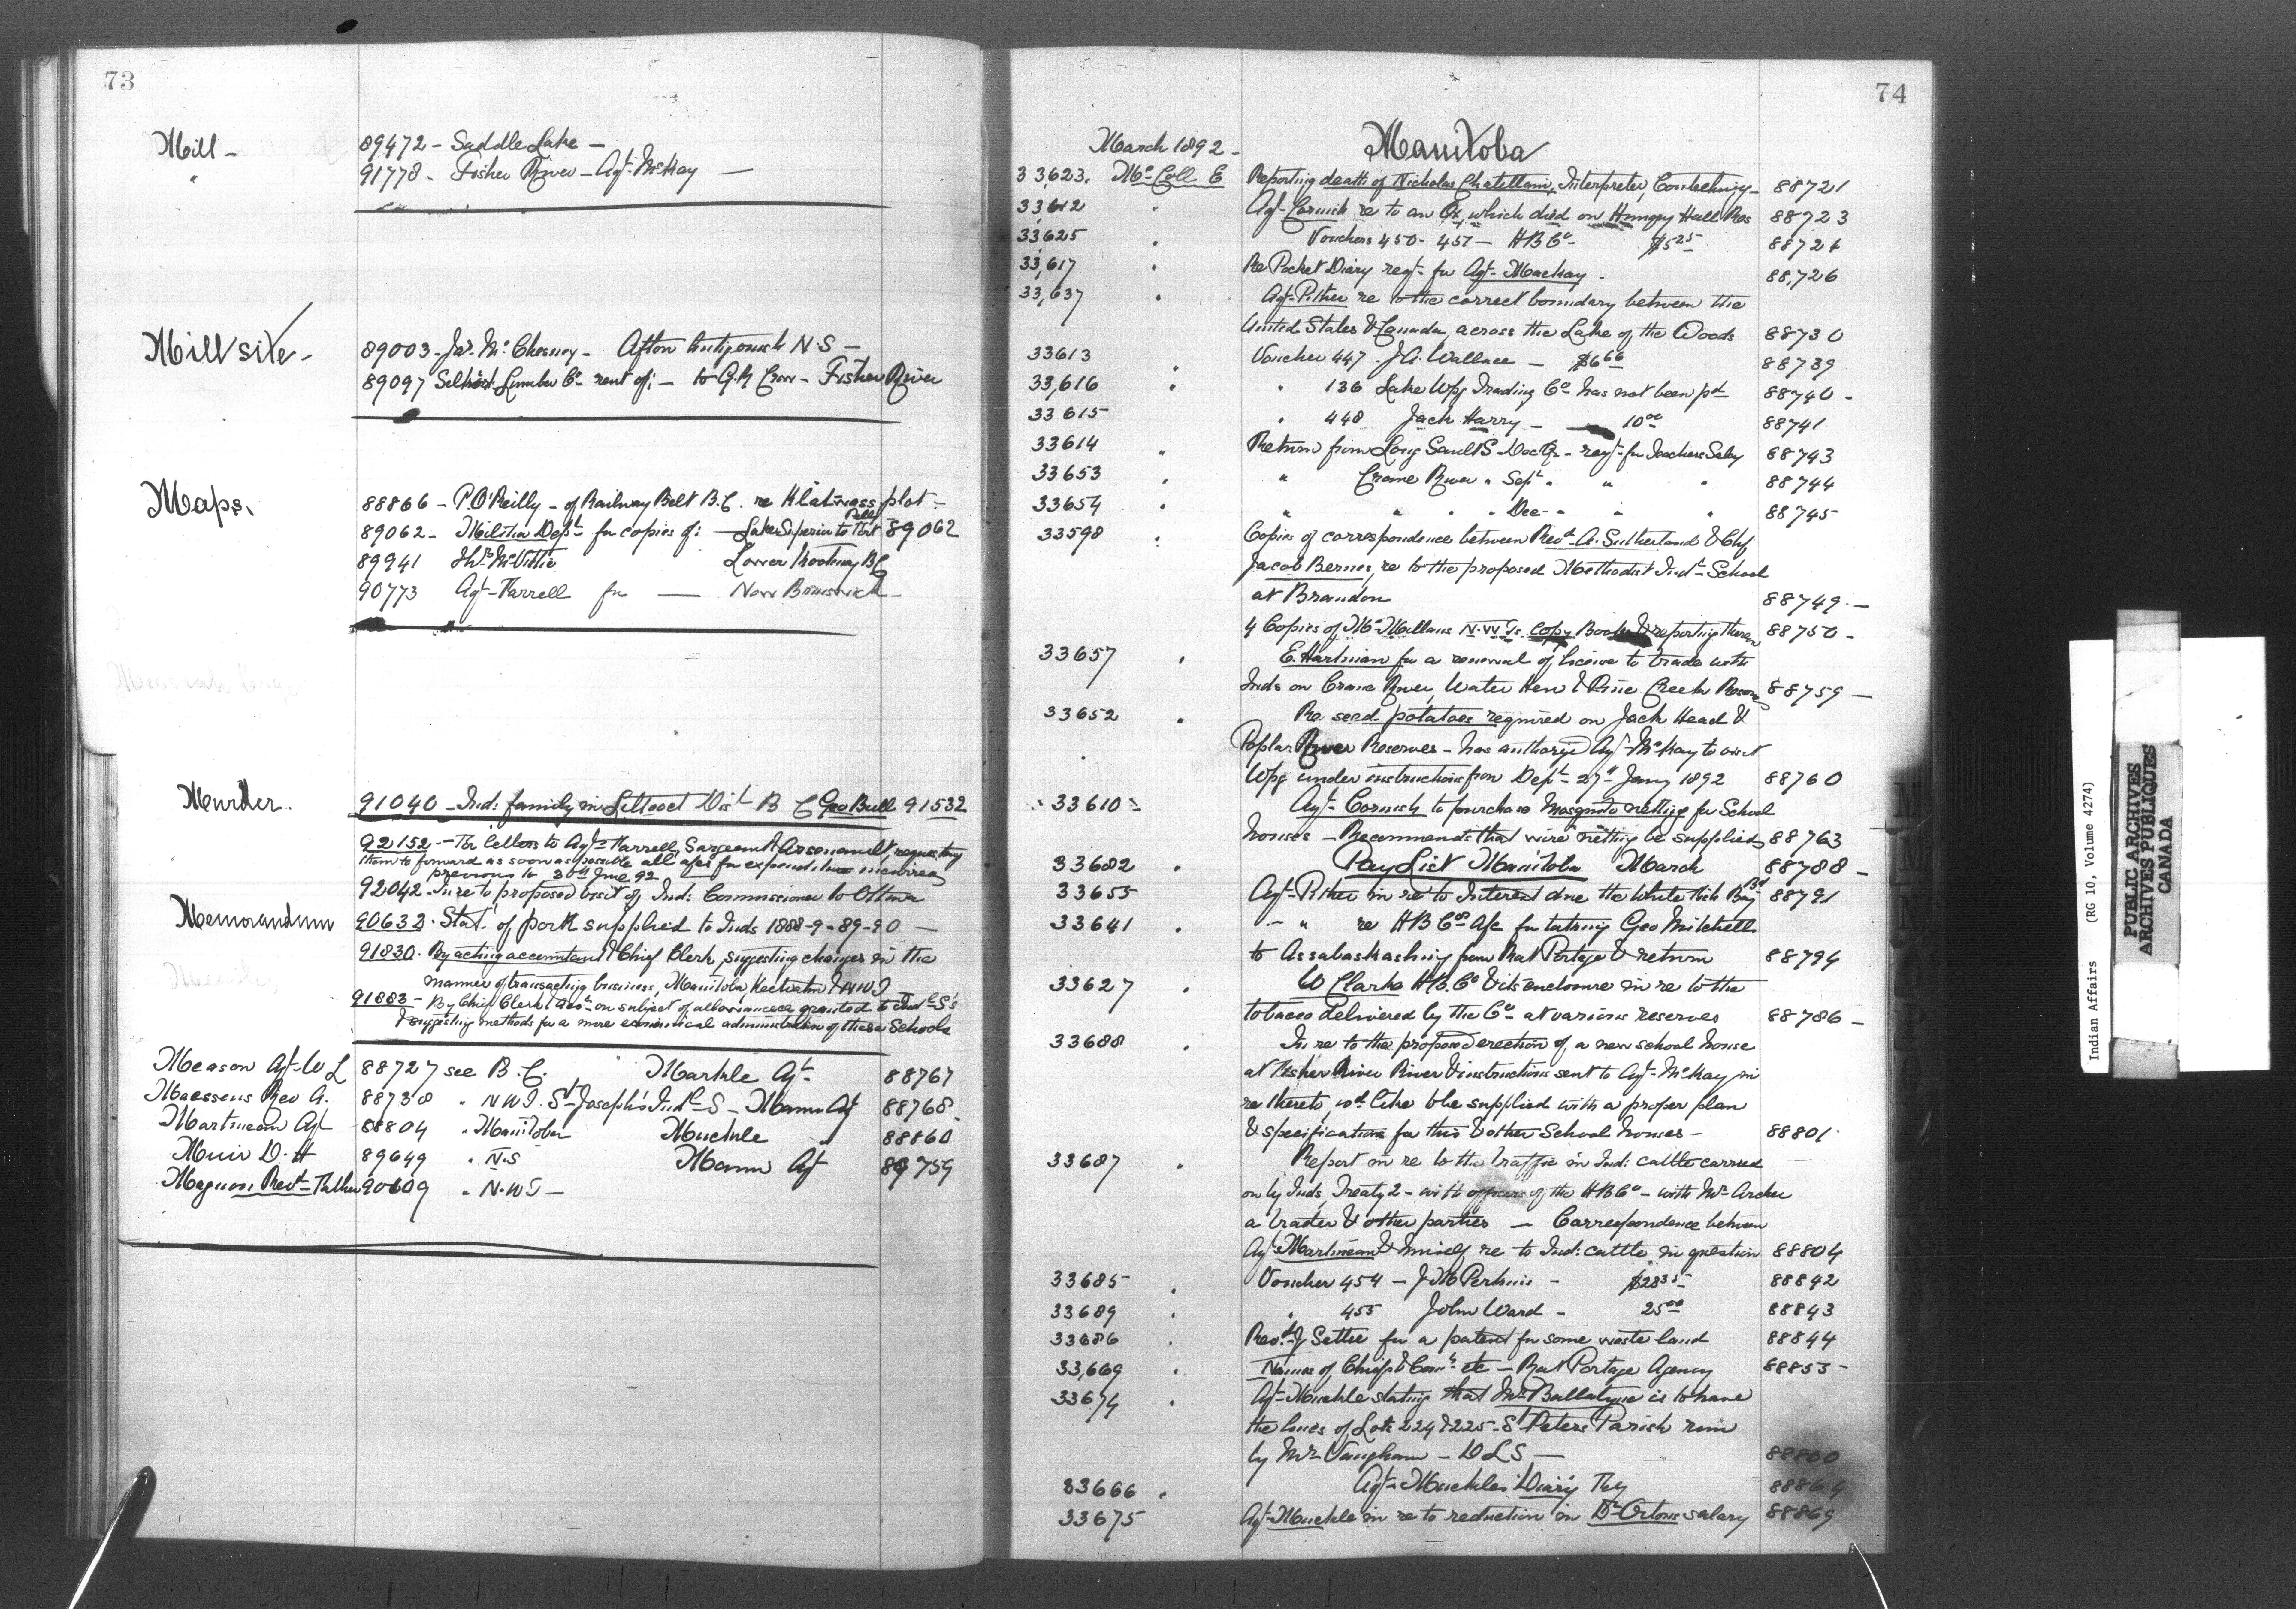 73
Mill -
89472 - Saddle Lake -
" 91778 - Fisher River - Agt. McKay -
Mill site -
89003 - Jas. Mc Chesney - Afton Antigonish N.S -
89097 Selkirk Lumber Co. rent of: - to G.H Crow - Fisher River
Maps.
88866 - P. O'Reilly - of Railway Belt B.C. re plot -
89062 - Militia Dept. for copies of: - Lake Superior to Port 89062
89941 McVittie Lower Kootenay B.C
90773 Agt. Farrell for - New Brunswick -
Murder.
91040 - Ind: family in Lillooet Dist. B C Geo Bull 91532
92152 - The letters to Agts. Farrell, Sargeant & Arsenault, requesting
them to forward as soon as possible all a/cs for expenditure incurred
previous to 30th June 92
92042 - In re to proposed visit of Ind: Commissioner to Ottawa
Memorandum
90633 - Stat. of pork supplied to Inds 1888-9-89-90 -
91830 - By acting accountant & Chief Clerk, suggesting changes in the
manner of transacting business, Manitoba Keewatin & NWT
91883 - By Chief Clerk & on subject of allowances granted to Indl. S's
& suggesting methods for a more economical administration of these Schools
Meason Agt. W L 88727 see B.C. Markle Agt. 88767
Maessens Rev A. 88738 " N W T. St. Joseph's Indl. S - Mann Agt 88768
Martineau Agt 88804 " Manitoba Muckle " 88860
Muir D. H 89649 " N.S Mann Agt 89759
Magnan Revd. Father 90609 " N.W T -
74
March 1892 - Manitoba
33,623. Mc Coll E Reporting death of Nicholas Chatellain, Interpreter, Coutcheching - 88721
33,612 " Agt. Cornish re to an Ox, which died on Hungry Hall Res 88723
33625 " Vouchers 450 - 457 - H B Co. $5 25 88724
33,617 " Re Pocket Diary reqd. for Agt. Mackay - 88,726
33,637 " Agt. Pither re to the correct boundary between the
United States & Canada, across the Lake of the Woods 88730
33613 " Voucher 447. J A. Wallace - $6 66 88739
33,616 " " 136 Lake Wpg Trading Co. has not been pd. 88740 -
33615 " 448 Jack Harry - 10 00 88741
33614 " Return from Long Sault S - Dec Qr - reqt. for Teachers Saly 88743
33653 " " Crane River " Sept. " " " 88744
33654 " " " " " Dec " " " 88745
33598 " Copies of correspondence between Revd. A. Sutherland & Chf
Jacob Bernes, re to the proposed Methodist Indl. School
at Brandon 88749 -
4 Copies of Mc Millans N.W.T.s Copy Books & reporting thereon 88750 -
33657 " E. Hartman for a renewal of license to trade with
Inds on Crane River, Water Hen & Pine Creek Reserves 88759 -
33652 " Re seed potatoes required on Jack Head &
Poplar River Reserves - has authorized Agt. McKay to visit
Wpg under instructions from Dept. 27th Jany 1892 88760
33610 " Agt. Cornish to purchase Mosquito netting for School
houses - Recommends that wire netting be supplied 88763
33682 " Pay List Manitoba March 88788 -
33655 " Agt. Pither in re to Interest due the White Fish Bay Bd 88791
33641 " " " re H B Co's A/c for taking Geo Mitchell
to Assabaskashing from Rat Portage & return 88794
33627 " W Clarke H.B. Co & its enclosure in re to the
tobacco delivered by the Co. at various reserves 88786 -
33688 " In re to the proposed erection of a new school house
at Fisher River River & instructions sent to Agt. McKay in
re thereto, wd like to be supplied with a proper plan
& specification for this & other School houses - 88801
33687 " Report in re to the traffic in Ind: cattle carried
on by Inds, Treaty 2 - with officers of the H B Co - with Mr. Archer
a trader & other parties - Correspondence between
Agt. Martineau & himself re to Ind: cattle in question 88804
33685 " Voucher 454 - J M Perkins - $28 35 88842
33689 " " 455 John Ward - 25 00 88843
33686 " Revd. J Settee for a patent for some waste land 88844
33,669 " Names of Chiefs & Cons. etc - Rat Portage Agency 88853 -
33674 " Agt. Muckle stating that Mr. Ballatyne is to have
the lines of Lots 224 & 225 - St Peters Parish run
by Mr. Vaughan - D L S - 88860
33666 " Agt. Muckles Diary Feby 88864
33675 Agt. Muckle in re to reduction in Dr. Ortons salary 88869
Indian Affairs (RG 10, Volume 4274)
PUBLIC ARCHIVES
ARCHIVES PUBLIQUES
CANADA